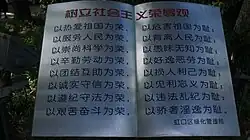 树立社会主义荣辱观
以热爱祖国为荣，以危害祖国为耻；
以服务人民为荣，以背离人民为耻；
以崇尚科学为荣，以愚昧无知为耻；
以辛勤劳动为荣，以好逸恶劳为耻；
以团结互助为荣，以损人利己为耻；
以诚实守信为荣，以见利忘义为耻；
以遵纪守法为荣，以违法乱纪为耻；
以艰苦奋斗为荣，以骄奢淫逸为耻。
虹口区绿化管理局